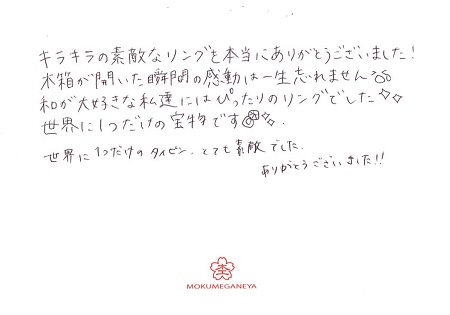 キラキラの素敵なリングを本当にありがとうございました!
木箱が開いた瞬間の感動は一生忘れません
和が大好きな私達にはぴったりのリングでした
世界に1つだけの宝物です。
世界に1つだけのタイピン、とても素敵でした。
ありがとうございました!!
杢
MOKUMEGANEYA